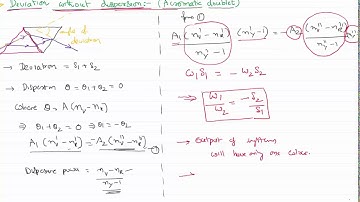 Deviation without dispersion:- (Acromatic doublet)
angle of
deviation
→ Deviation = δ₁+δ₂
→ Dispersion θ = θ₁+θ₂ = 0
Where θ = A(nᵥ-nᵣ)
→ θ₁+θ₂ = 0 ⇒ θ₁ = -θ₂
A₁(nᵥ'-nᵣ') = -A₂(nᵥ''-nᵣ'') -①
Dispersive power = nᵥ-nᵣ / nᵧ-1
from ①
A₁(nᵥ'-nᵣ') / nᵧ'-1 (nᵧ'-1) = -A₂(nᵥ''-nᵣ'') / nᵧ''-1
ω₁δ₁ = -ω₂δ₂
⇒ ω₁/ω₂ = -δ₂/δ₁
→ Output of system
will have only one color.
→